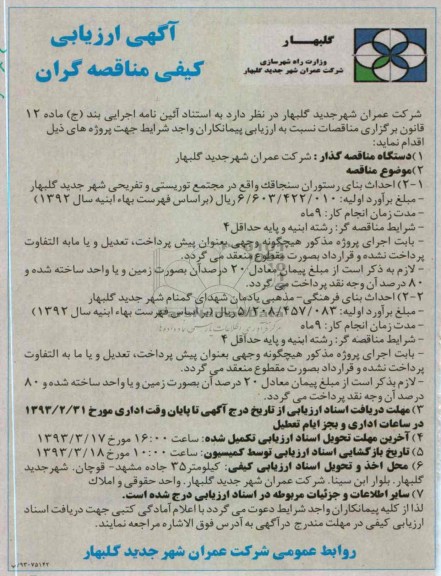 گلبهار
وزارت راه شهرسازی
شرکت عمران شهر جدید گلبهار
آگهی ارزیابی
کیفی مناقصه گران
شرکت عمران شهرجدید گلبهار در نظر دارد به استناد آئین نامه اجرایی بند (ج) ماده ۱۲
قانون برگزاری مناقصات نسبت به ارزیابی پیمانکاران واجد شرایط جهت پروژه های ذیل
اقدام نماید:
۱) دستگاه مناقصه گذار: شرکت عمران شهرجدید گلبهار
۲) موضوع مناقصه
۲-۱) احداث بنای رستوران سنجاقک واقع در مجتمع توریستی و تفریحی شهر جدید گلبهار
- مبلغ برآورد اولیه: ۶/۶۰۳/۴۲۲/۰۱۰ ریال (براساس فهرست بهاء ابنیه سال ۱۳۹۲)
- مدت زمان انجام کار: ۹ ماه
- شرایط مناقصه گر: رشته ابنیه و پایه حداقل ۴
- بابت اجرای پروژه مذکور هیچگونه وجهی بعنوان پیش پرداخت، تعدیل و یا مابه التفاوت
پرداخت نشده و قرارداد بصورت مقطوع منعقد می گردد.
- لازم به ذکر است از مبلغ پیمان معادل ۲۰ درصد آن بصورت زمین و یا واحد ساخته شده و
۸۰ درصد آن وجه نقد پرداخت می گردد.
۲-۲) احداث بنای فرهنگی- مذهبی یادمان شهدای گمنام شهر جدید گلبهار
- مبلغ برآورد اولیه: ۵/۲۰۸/۴۵۷/۰۸۳ ریال (براساس فهرست بهاء ابنیه سال ۱۳۹۲)
- مدت زمان انجام کار: ۹ ماه
- شرایط مناقصه گر: رشته ابنیه و پایه حداقل ۴
- بابت اجرای پروژه مذکور هیچگونه وجهی بعنوان پیش پرداخت، تعدیل و یا ما به التفاوت
پرداخت نشده و قرارداد بصورت مقطوع منعقد می گردد.
- لازم بذکر است از مبلغ پیمان معادل ۲۰ درصد آن بصورت زمین و یا واحد ساخته شده و ۸۰
درصد آن وجه نقد پرداخت می گردد.
۳) مهلت دریافت اسناد ارزیابی از تاریخ درج آگهی تا پایان وقت اداری مورخ ۱۳۹۳/۲/۳۱
در ساعات اداری و بجز ایام تعطیل
۴) آخرین مهلت تحویل اسناد ارزیابی تکمیل شده: ساعت ۱۶:۰۰ مورخ ۱۳۹۳/۳/۱۷
۵) تاریخ بازگشایی اسناد ارزیابی توسط کمیسیون: ساعت ۱۰:۰۰ مورخ ۱۳۹۳/۳/۱۸
۶) محل اخذ و تحویل اسناد ارزیابی کیفی: کیلومتر ۳۵ جاده مشهد- قوچان. شهرجدید
گلبهار. بلوار ابن سینا. شرکت عمران شهر جدید گلبهار. واحد حقوقی و املاک
۷) سایر اطلاعات و جزئیات مربوطه در اسناد ارزیابی درج شده است.
لذا از کلیه پیمانکاران واجد شرایط دعوت می گردد با اعلام آمادگی کتبی جهت دریافت اسناد
ارزیابی کیفی در مهلت مندرج در آگهی به آدرس فوق الاشاره مراجعه نمایند.
روابط عمومی شرکت عمران شهر جدید گلبهار
۹۳۰۷۵۱۴۲/پ